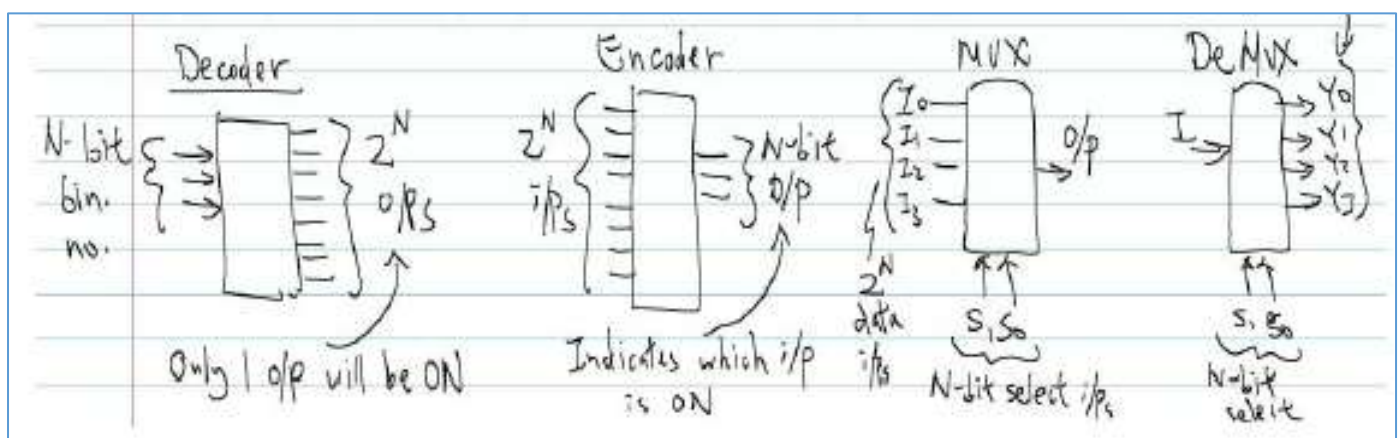 Decoder
N-bit
bin.
no.
2^N
O/Ps
Only 1 O/P will be ON
Encoder
2^N
i/Ps
N-bit
O/P
Indicates which i/P
is ON
MUX
I0
I1
I2
I3
O/P
2^N
data
i/Ps
S1 S0
N-bit select i/Ps
DeMUX
I
Y0
Y1
Y2
Y3
S1 S0
N-bit
select